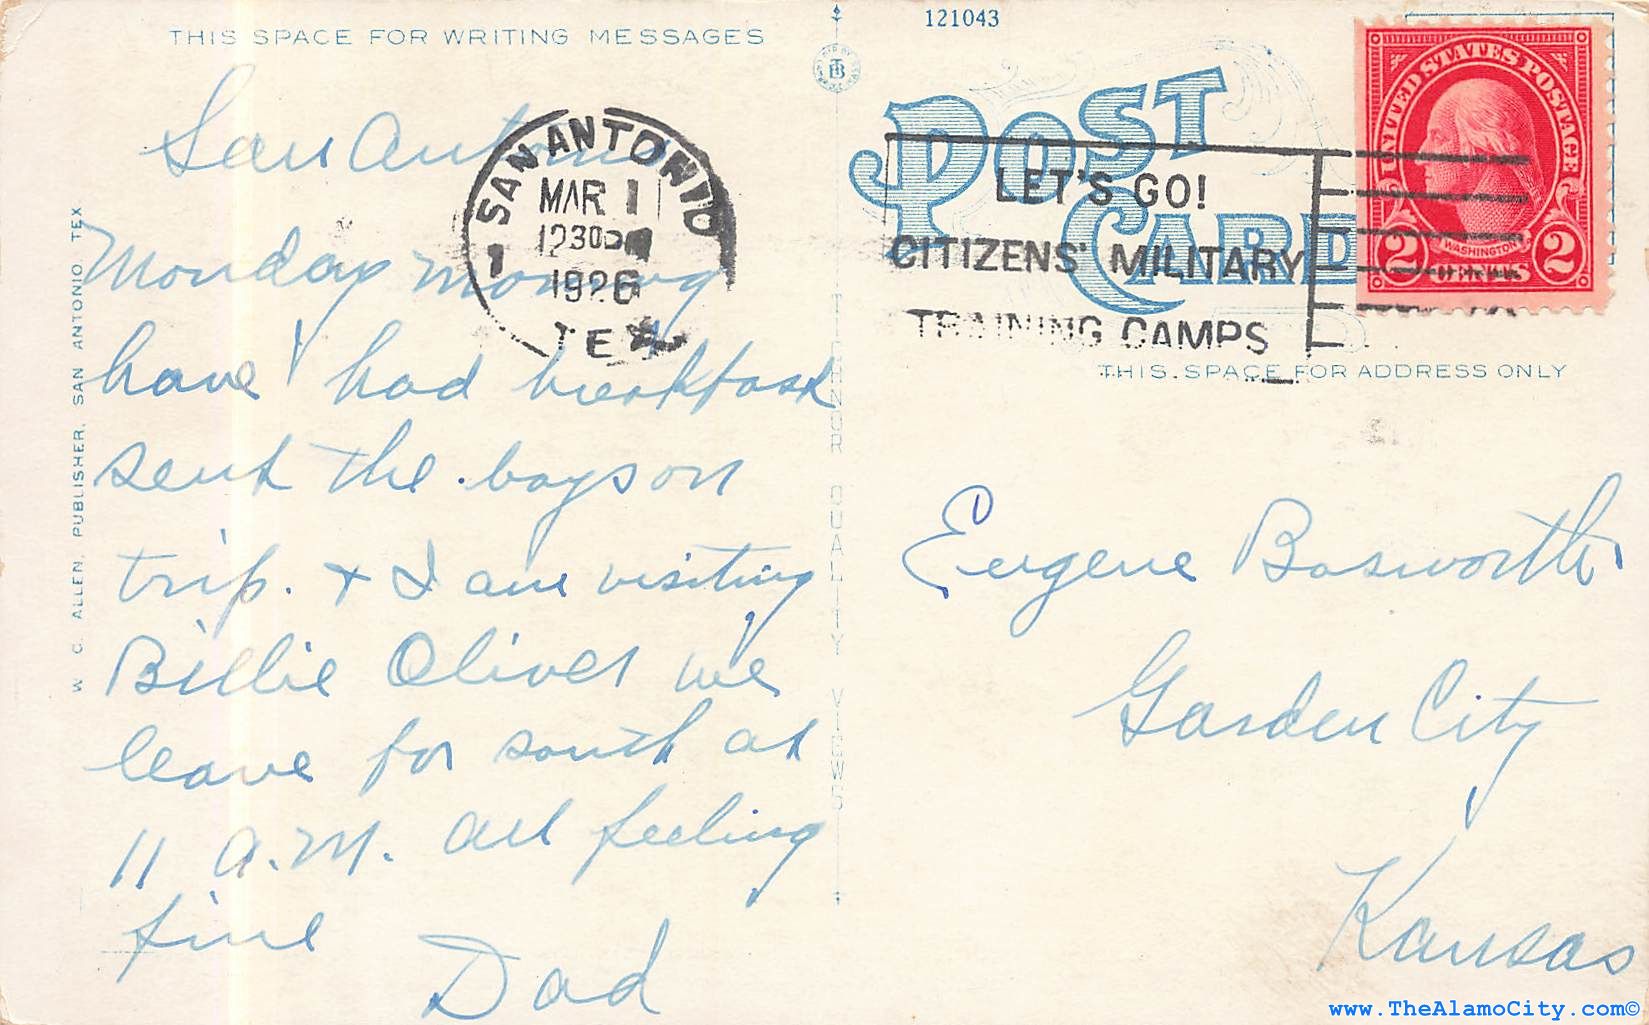 THIS SPACE FOR WRITING MESSAGES
San Antonio
Monday morning
have had breakfast
sent the boys on
trip. + I am visiting
Billie Oliver we
leave for south at
11 a.m. all feeling
fine
Dad
W. C. ALLEN, PUBLISHER, SAN ANTONIO, TEX
SAN ANTONIO
MAR 1
1230P
1926
TEX
1
121043
POST
CARD
LET'S GO!
CITIZENS' MILITARY
TRAINING CAMPS
UNITED STATES POSTAGE
WASHINGTON
2 CENTS 2
THIS SPACE FOR ADDRESS ONLY
TICHNOR QUALITY VIEWS
Eugene Bosworth
Garden City
Kansas
www.TheAlamoCity.com©